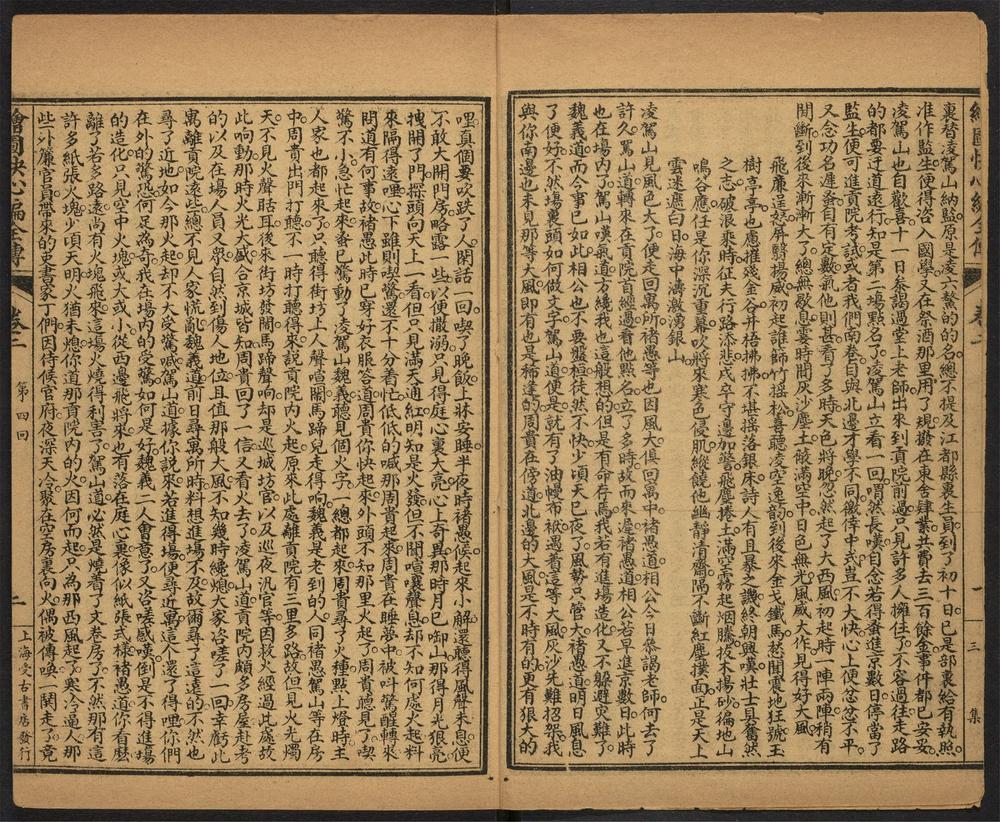 裏替凌駕山納監原是凌六鰲的的名總不提及江都縣裏生員到了初十日已是部裏給有執照
准作監生便得咨入國學又在祭酒那里用了規撥在東舍肄業共費去三百餘金事件都已安妥
凌駕山也自歡喜十一日叅謁過堂上老師出來到貢院前過只見許多人擁住了不容過往走路
的都要迂道遠行知是第二場點名了凌駕山立看一回喟然長嘆自念若得蚤進京數日停當了
監生便可進貢院考試或者我們南卷自與北邊才學不同徼倖中式豈不大快心上便忿忿不平
又念功名遲蚤自有定數氣他則甚看了多時天色將晚忽然起了大西風初起時一陣兩陣稍有
間斷到後來漸漸大了總無歇息霎時間灰沙塵土皾滿空中日色無光風威大作見得好大風
飛廉逞怒屏翳揚威初起誰師竹搖松喜聽凌空逸韵到後來金戈鐵馬愁聞震地狂號玉
樹亭亭也應摧殘金谷井梧拂拂不堪搖落銀床詩人有且暴之譏終朝興嘆壯士具奮然
之志破浪乘時征夫行路添悲戍卒守邊加警飛塵捲土滿空霧起烟騰拔木揚砂徧地山
鳴谷應任是你深沉重幕吹將來寒色侵肌縱饒他幽靜清齋隔不斷紅塵撲面正是天上
雲迷遮白日海中濤激湧銀山
凌駕山見風色大了便走回寓所褚愚等也因風大俱回寓中褚愚道相公今日叅謁老師何去了
許久駕山道轉來在貢院首經過看他點名立了多時故而來遲褚愚道相公若早進京數日此時
也在塲內了駕山嘆氣道方纔我也這般想的但是有命存焉我若有進塲造化又不躲避灾難了
魏義道而今事已如此相公也不要盤桓徒然不快少頃天已夜了風勢只管大褚愚道明日風息
了便好不然塲裏頭如何做文字駕山道便是就有了油幔布袱遇着這等大風灰沙先難招架我
與你南邊也未見那等大風即有也是稀逢的周貴在傍道北邊的大風是不時有的更有狠大的
哩真個要吹跌了人閑話一回喫了晚飯上牀安睡半夜時褚愚候起來小解還聽得風聲未息便
不敢大開門房略露一些以便撒溺只見得庭心裏大亮心上奇異那時月已卸山那得月光狠亮
拽開了門探頭向天上一看但只見滿天通紅明知是火發但不聞喧嚷聲息却不知何處火起料
來隔得遠哩心下雖則喫驚還不十分着忙低低的喊那周貴起來周貴在睡夢中被呌驚醒轉來
問道有何事故褚愚此時已穿好衣服答道周貴你快起來外頭不知那里火起了周貴聽見了喫
驚不小急忙起來蚤已驚動了凌駕山魏義聽見個火字一總都起來周貴尋了火種點上燈時主
人家也都起來了只聽得街坊上人聲喧鬧馬蹄兒走得响魏義是老到的人同褚愚駕山等在房
中周貴出門打聽不一時打聽得來說貢院內火起原來此處離貢院有三里多路故但見火光燭
天不見火聲聒耳後來街坊發鬧馬蹄聲响却是巡城坊官以及巡夜汛官等因救火經過此處故
此响動那時火光大盛合京城皆知周貴回了一信又看火去了凌駕山道貢院內頗多房屋赴考
的以及在塲人員又眾自然到傷人地位且值那般大風不知幾時纔熄大家咨嗟了一回幸虧此
寓離貢院遠些總不見人家慌亂魏義道前日尋寓所時料想進塲不及故爾尋了這遠的不然也
尋了近地如今那火起却不大受驚喊駕山道據你說來若進得塲便尋近寓這個還了得哩你們
在外的驚恐何足為奇我在塲內的受驚如何是好魏義二人會意了又咨嗟感嘆倒是不得進塲
的造化只見空中火塊或大或小從西邊飛將來也有落在庭心裏像似紙張式樣褚愚道你看麼
離了若多路遠尚有火塊飛來這塲火燒得利害了駕山道必然是燒着了文卷房了不然那有這
許多紙張火塊少頃天明火猶未熄你道那貢院內的火因何而起只為那西風起了寒冷逼人那
些外簾官員帶來的吏書家丁們因侍候官府夜深天冷聚在空房裏向火偶被傳喚一鬨走了竟
繪圖快心編全傳
卷二
一
三集
繪圖快心編全傳
卷二
第四回
二
上海受古書店發行